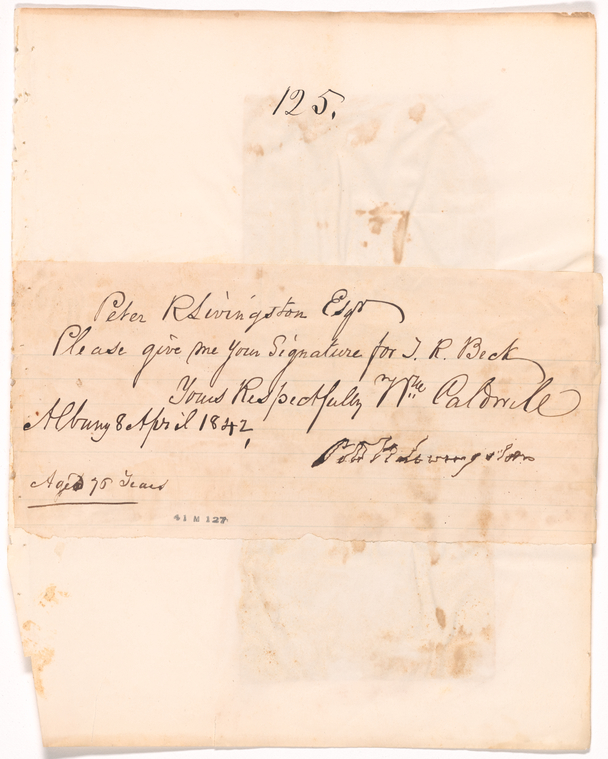 125.
Peter R Livingston Esqr
Please give me your Signature for T. R. Beck
Yours Respectfully Wm Caldwell
Albany 8 April 1842,
Peter R Livingston
Aged 76 Years
41 M 127